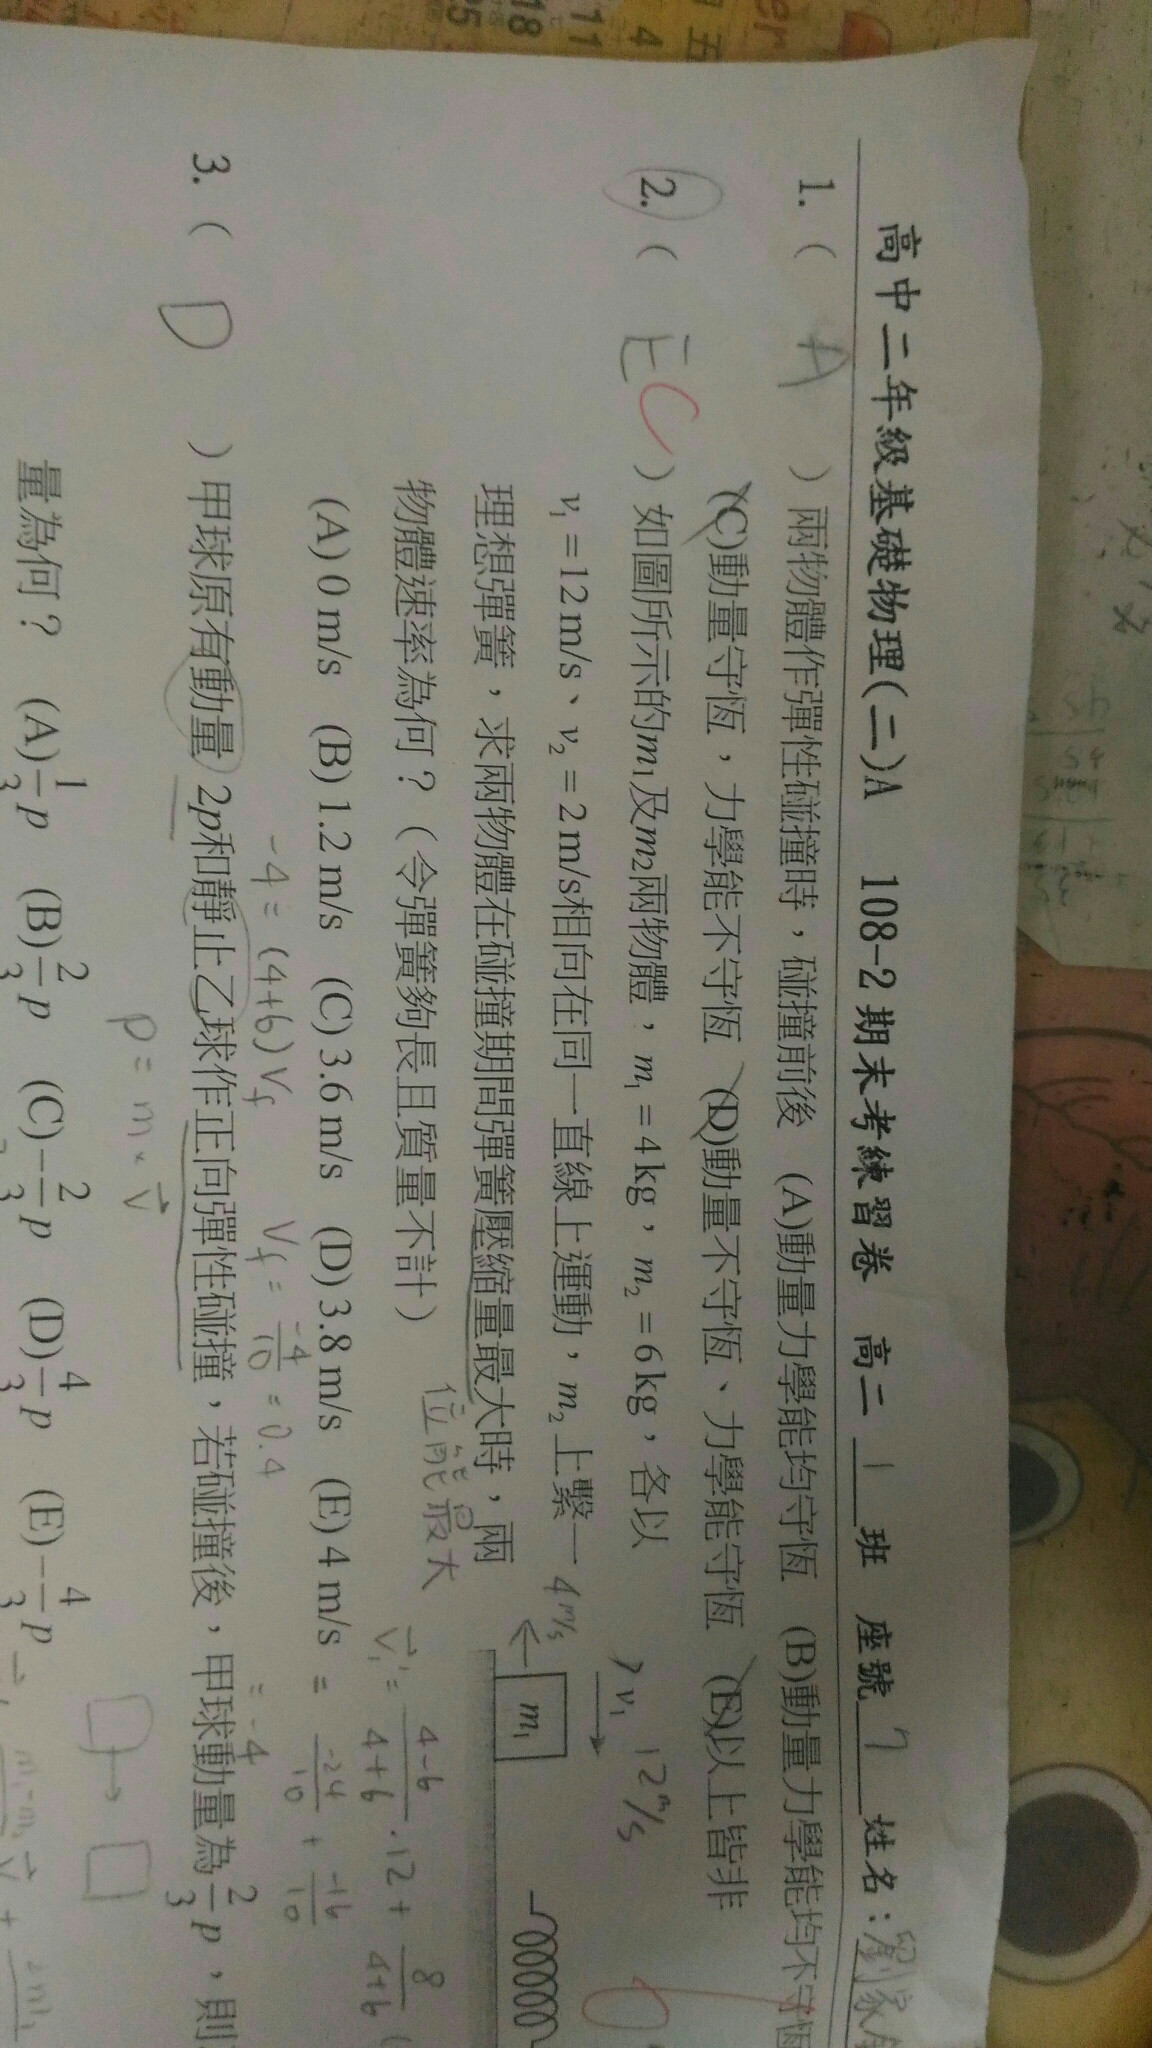 高中二年級基礎物理(二)A 108-2 期末考練習卷 高二 1 班 座號 7 姓名：劉家
1. ( A ) 兩物體作彈性碰撞時，碰撞前後 (A)動量力學能均守恆 (B)動量力學能均不守恆
(C)動量守恆，力學能不守恆 (D)動量不守恆、力學能守恆 (E)以上皆非
2. ( E C ) 如圖所示的m₁及m₂兩物體，m₁＝4 kg，m₂＝6 kg，各以
v₁＝12 m/s、v₂＝2 m/s相向在同一直線上運動，m₂上繫一
理想彈簧，求兩物體在碰撞期間彈簧壓縮量最大時，兩
物體速率為何？（令彈簧夠長且質量不計）
位能最大
(A) 0 m/s (B) 1.2 m/s (C) 3.6 m/s (D) 3.8 m/s (E) 4 m/s
v₁ 12 m/s
4 m/s
m₁
v₁' = 4-6/4+6 · 12 + 8/4+6 (
= -24/10 + -16/10
= -4
-4 = (4+6) Vf Vf = -4/10 = 0.4
3. ( D ) 甲球原有動量 2p和靜止乙球作正向彈性碰撞，若碰撞後，甲球動量為 2/3 p，則
p = m · v
量為何？ (A) 1/3 p (B) 2/3 p (C) －2/3 p (D) 4/3 p (E) －4/3 p